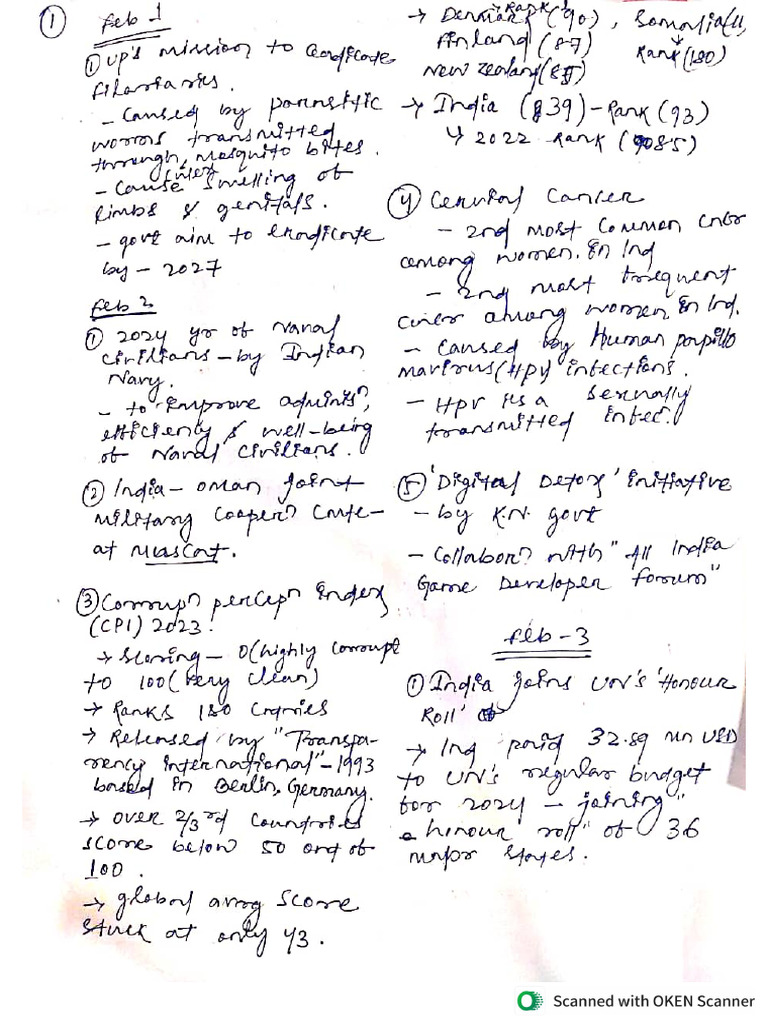 ①
Feb-1
① UP's mission to Eradicate
filariaries.
- Caused by parasitic
worms transmitted
through mosquito bites.
(culex)
- Cause swelling of
limbs & genitals.
- govt aim to eradicate
by - 2027
Feb 2
① 2024 yr of Naval
civilians - by Indian
Navy.
- to improve adminisn,
efficiency & well-being
of Naval civilians.
② India - Oman joint
military Coopern Comte-
at Muscat.
③ Corrupn percepn index
(CPI) 2023.
→ Scoring - 0 (highly corrupt
to 100 (very clean)
→ Ranks 180 Cntries
→ Released by "Transpa-
rency international" - 1993
based in Berlin, Germany.
→ over 2/3rd Countries
score below 50 out of
100.
→ global avrg score
stuck at only 43.
→ Rank
→ Denmark (90), Somalia (11,
Finland (87) Rank (180)
New Zealand (85)
→ India (39) - Rank (93)
↳ 2022 Rank (85)
④ Cervical Cancer
- 2nd most common cncr
among women in Ind
- 2nd most frequent
cncer among women, in Ind.
- caused by Human papillo
mavirus (HPV) infections.
- HPV is a sexually
transmitted infec.
⑤ 'Digital Detox' initiative
- by K.N. govt
- Collaborn with "All India
Game Developer forum"
Feb - 3
① India joins UN's 'Honour
Roll'
→ Ind paid 32.89 mn USD
to UN's regular budget
for 2024 - joining
"honour roll" of 36
major states.
Scanned with OKEN Scanner